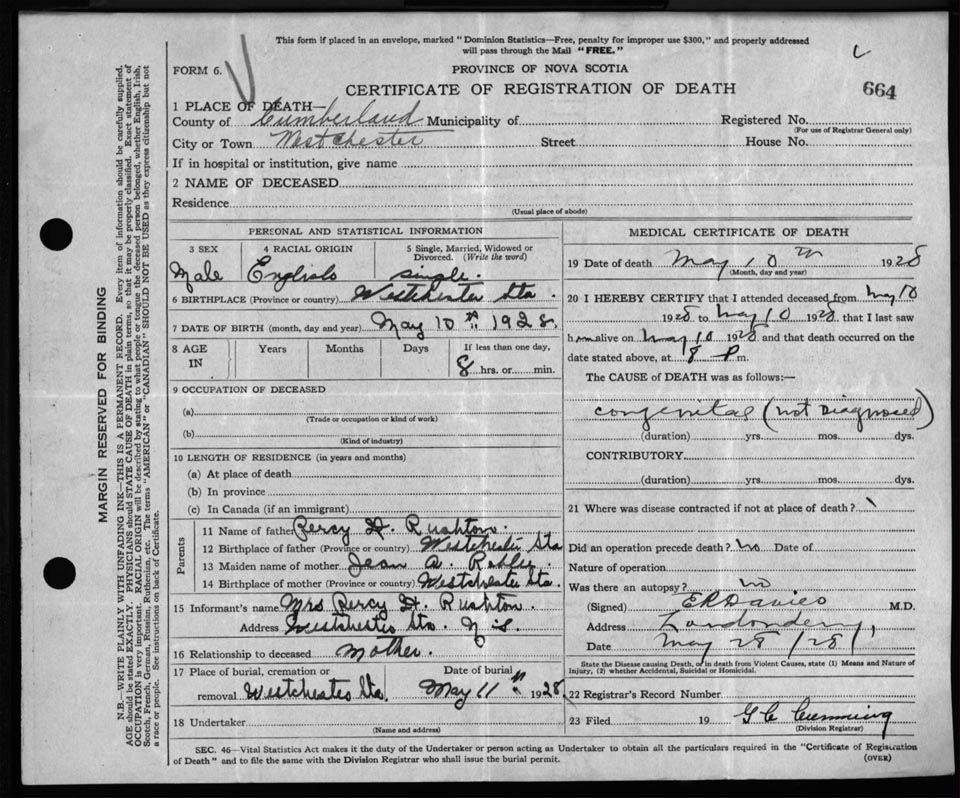 This form if placed in an envelope, marked "Dominion Statistics—Free, penalty for improper use $300," and properly addressed
will pass through the Mail "FREE."
FORM 6.
PROVINCE OF NOVA SCOTIA
CERTIFICATE OF REGISTRATION OF DEATH
664
1 PLACE OF DEATH—
County of Cumberland Municipality of Registered No.
(For use of Registrar General only)
City or Town Westchester Street House No.
If in hospital or institution, give name
2 NAME OF DECEASED
Residence
(Usual place of abode)
PERSONAL AND STATISTICAL INFORMATION
3 SEX 4 RACIAL ORIGIN 5 Single, Married, Widowed or Divorced. (Write the word)
Male English single.
6 BIRTHPLACE (Province or country) Westchester Sta.
7 DATE OF BIRTH (month, day and year) May 10th 1928.
8 AGE IN Years Months Days If less than one day,
8 hrs. or min.
9 OCCUPATION OF DECEASED
(a)
(Trade or occupation or kind of work)
(b)
(Kind of industry)
10 LENGTH OF RESIDENCE (in years and months)
(a) At place of death
(b) In province
(c) In Canada (if an immigrant)
Parents
11 Name of father Percy H. Rushton.
12 Birthplace of father (Province or country) Westchester Sta
13 Maiden name of mother Jean A.
14 Birthplace of mother (Province or country) Westchester Sta.
15 Informant's name Mrs Percy H. Rushton.
Address Westchester Sta. N.S.
16 Relationship to deceased Mother.
17 Place of burial, cremation or Date of burial
removal Westchester Sta. May 11th 1928
18 Undertaker
(Name and address)
MEDICAL CERTIFICATE OF DEATH
19 Date of death May 10th 1928
(Month, day and year)
20 I HEREBY CERTIFY that I attended deceased from May 10
1928 to May 10 1928 that I last saw
him alive on May 10 1928 and that death occurred on the
date stated above, at 8 P m.
The CAUSE of DEATH was as follows:—
congenital (not Diagnosed)
(duration) yrs. mos. dys.
CONTRIBUTORY
(duration) yrs. mos. dys.
21 Where was disease contracted if not at place of death?
Did an operation precede death? No Date of
Nature of operation
Was there an autopsy? no
(Signed) E R Davies M.D.
Address Londonderry,
Date May 28 /28
State the Disease causing Death, or in death from Violent Causes, state (1) Means and Nature of
Injury, (2) whether Accidental, Suicidal or Homicidal.
22 Registrar's Record Number
23 Filed 19 G C Cumming
(Division Registrar)
SEC. 46—Vital Statistics Act makes it the duty of the Undertaker or person acting as Undertaker to obtain all the particulars required in the "Certificate of Registration
of Death" and to file the same with the Division Registrar who shall issue the burial permit.
(OVER)
MARGIN RESERVED FOR BINDING
N.B.—WRITE PLAINLY WITH UNFADING INK—THIS IS A PERMANENT RECORD. Every item of information should be carefully supplied.
AGE should be stated EXACTLY. PHYSICIANS should STATE CAUSE OF DEATH in plain terms, so that it may be properly classified. Exact statement of
OCCUPATION is very important. RACIAL ORIGIN will be described by stating to what people or tongue the deceased person belonged, whether English, Irish,
Scotch, French, German, Russian, Ruthenian, etc. The terms "AMERICAN" or "CANADIAN" SHOULD NOT BE USED as they express citizenship but not
a race or people. See instructions on back of Certificate.